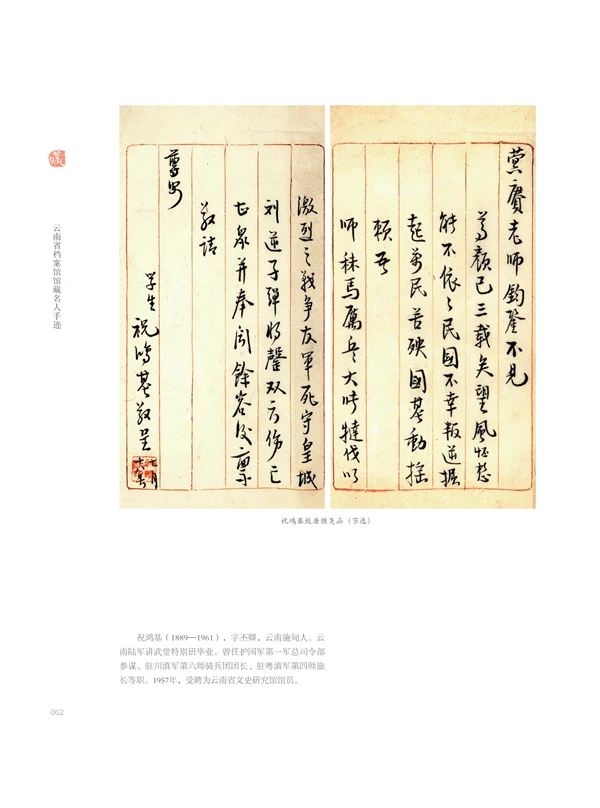 蓂赓老师钧鉴不见
芎颜已三载矣望风怀想
能不依々民国不幸叛逆掘
起万民苦殃国基动摇
赖吾
师秣马厉兵大吁挞伐以
激烈之战争友军死守皇城
刘逆子弹将罄双方伤亡
甚众并奉闻馀容后禀
敬请
尊安
学生祝鸿基敬呈
七月
祝鸿基致唐继尧函（节选）
云南省档案馆馆藏名人手迹
祝鸿基（1889—1961），字丕卿，云南施甸人。云
南陆军讲武堂特别班毕业。曾任护国军第一军总司令部
参谋、驻川滇军第六师骑兵团团长、驻粤滇军第四师旅
长等职。1957年，受聘为云南省文史研究馆馆员。
062